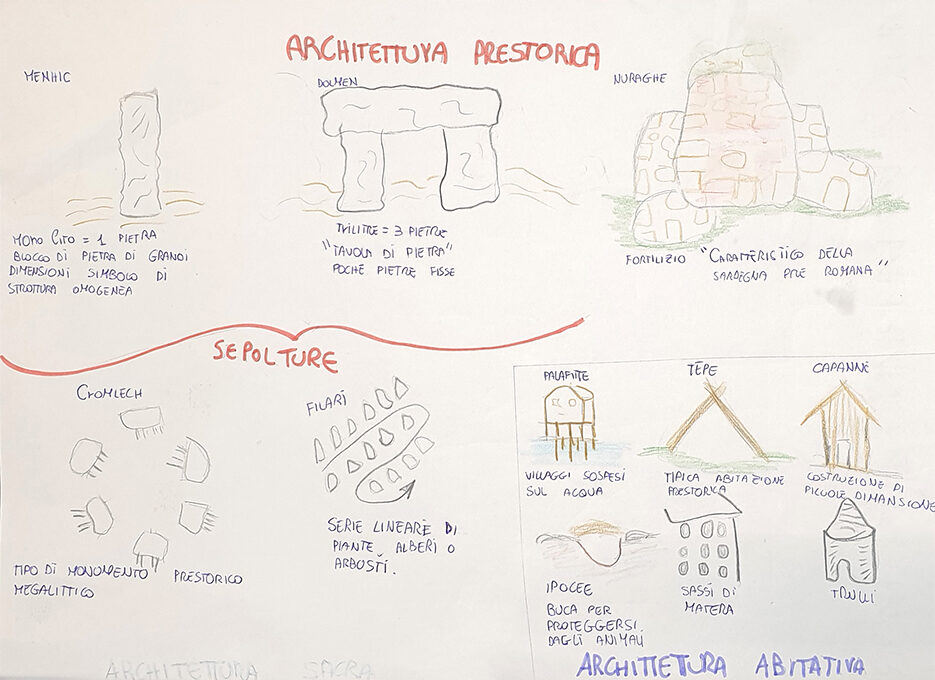 ARCHITETTUVA PRESTORICA
MENHIC
DOLMEN
NURAGHE
MONO LITO = 1 PIETRA
BLOCCO DI PIETRA DI GRANDI
DIMENSIONI SIMBOLO DI
STRUTTURA OMOGENEA
TRILITRE = 3 PIETRE
"TAVOLA DI PIETRA"
POCHE PIETRE FISSE
FORTILIZIO "CARATTERISTICO DELLA
SARDEGNA PRE ROMANA"
SEPOLTURE
CROMLECH
TIPO DI MONUMENTO PRESTORICO
MEGALITTICO
FILARI
SERIE LINEARE DI
PIANTE, ALBERI O
ARBUSTI.
PALAFITTE
TEPE
CAPANNE
VILLAGGI SOSPESI
SUL ACQUA
TIPICA ABITAZIONE
PRESTORICA
COSTRUZIONE DI
PICCOLE DIMANSIONE
IPOCEE
BUCA PER
PROTEGGERSI
DAGLI ANIMALI
SASSI DI
MATERA
TRULLI
ARCHITETTURA SACRA
ARCHITTETURA ABITATIVA